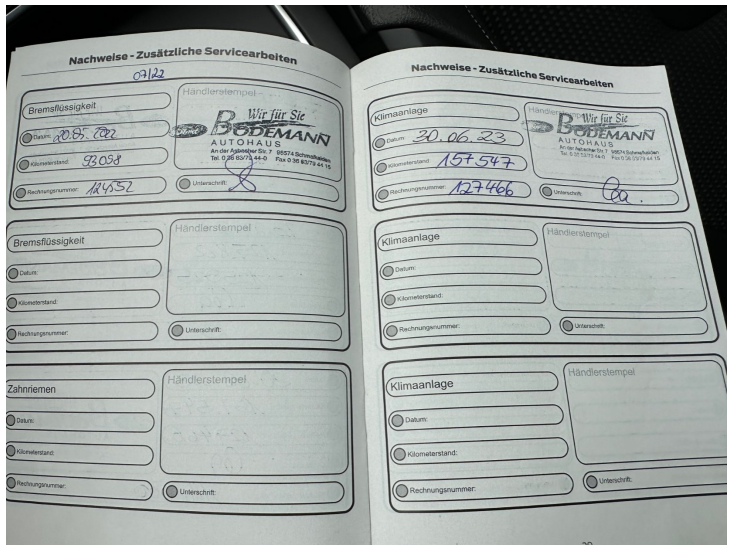 Nachweise - Zusätzliche Servicearbeiten
07/22
Bremsflüssigkeit
Datum: 20.05.2022
Kilometerstand: 93098
Rechnungsnummer: 124552
Händlerstempel
Wir für Sie
BODEMANN
AUTOHAUS
An der Asbacher Str. 7 98574 Schmalkalden
Tel. 0 36 83/79 44-0 Fax 0 36 83/79 44 15
Unterschrift:
Bremsflüssigkeit
Datum:
Kilometerstand:
Rechnungsnummer:
Händlerstempel
Unterschrift:
Zahnriemen
Datum:
Kilometerstand:
Rechnungsnummer:
Händlerstempel
Unterschrift:
Nachweise - Zusätzliche Servicearbeiten
Klimaanlage
Datum: 30.06.23
Kilometerstand: 157547
Rechnungsnummer: 127466
Händlerstempel
Wir für Sie
BODEMANN
AUTOHAUS
An der Asbacher Str. 7 98574 Schmalkalden
Tel. 0 36 83/79 44-0 Fax 0 36 83/79 44 15
Unterschrift:
Klimaanlage
Datum:
Kilometerstand:
Rechnungsnummer:
Händlerstempel
Unterschrift:
Klimaanlage
Datum:
Kilometerstand:
Rechnungsnummer:
Händlerstempel
Unterschrift: